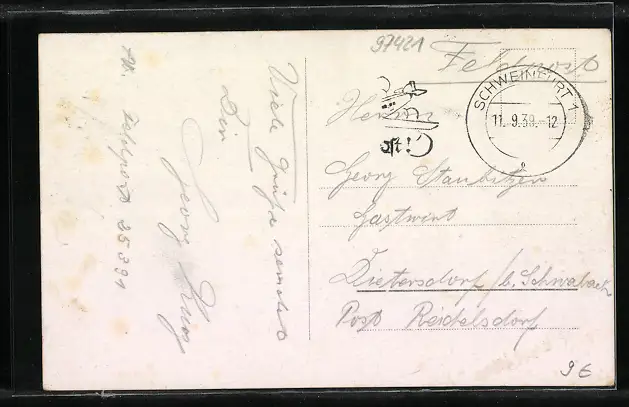 97421
Feldpost
SCHWEINFURT 1
11.9.39.-12
Herrn
Georg Staubitzer
Gastwirt
Dietersdorf / b. Schwabach
Post Reidelsdorf
Viele Grüße sendet
Dir
Georg
Feldpost 25391
9 €